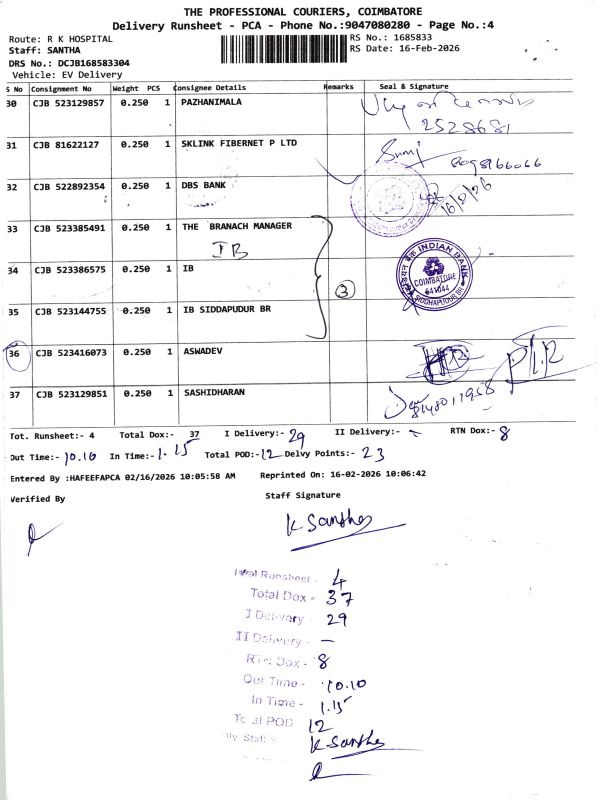 THE PROFESSIONAL COURIERS, COIMBATORE
Delivery Runsheet - PCA - Phone No.:9047080280 - Page No.:4
Route: R K HOSPITAL
RS No.: 1685833
Staff: SANTHA
RS Date: 16-Feb-2026
DRS No.: DCJB168583304
Vehicle: EV Delivery
S No Consignment No Weight PCS Consignee Details Remarks Seal & Signature
30 CJB 523129857 0.250 1 PAZHANIMALA
2528681
31 CJB 81622127 0.250 1 SKLINK FIBERNET P LTD
8098166066
32 CJB 522892354 0.250 1 DBS BANK
16/2/26
33 CJB 523385491 0.250 1 THE BRANACH MANAGER
IB
34 CJB 523386575 0.250 1 IB
3
INDIAN BANK
COIMBATORE
641044
SIDDHAPUDUR BR
35 CJB 523144755 0.250 1 IB SIDDAPUDUR BR
36 CJB 523416073 0.250 1 ASWADEV
37 CJB 523129851 0.250 1 SASHIDHARAN
Tot. Runsheet:- 4 Total Dox:- 37 I Delivery:- 29 II Delivery:- - RTN Dox:- 8
Out Time:- 10.10 In Time:- 1.15 Total POD:- 12 Delvy Points:- 23
Entered By :HAFEEFAPCA 02/16/2026 10:05:58 AM Reprinted On: 16-02-2026 10:06:42
Verified By Staff Signature
K Santha
Total Runsheet - 4
Total Dox - 37
I Delivery - 29
II Delivery - -
RTN Dox - 8
Out Time - 10.10
In Time - 1.15
Total POD 12
K Santha